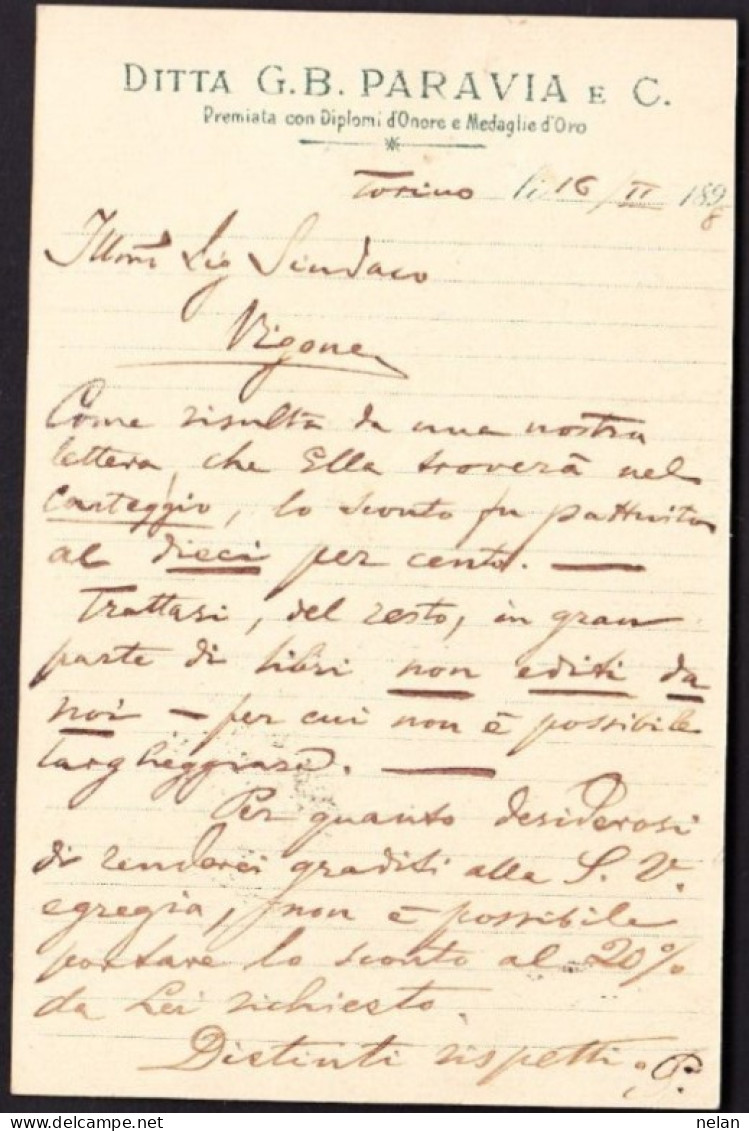 DITTA G.B. PARAVIA E C.
Premiata con Diplomi d'Onore e Medaglie d'Oro
Torino li 16/II 1898
Illmo Sig Sindaco
Vigone
Come risulta da una nostra
lettera, che Ella troverà nel
Carteggio, lo sconto fu pattuito
al dieci per cento. —
Trattasi, del resto, in gran
parte di libri non editi da
noi — per cui non è possibile
largheggiare. —
Per quanto desiderosi
di renderci graditi alla S. V.
egregia, non è possibile
portare lo sconto al 20%
da Lei richiesto.
Distinti rispetti
nelan